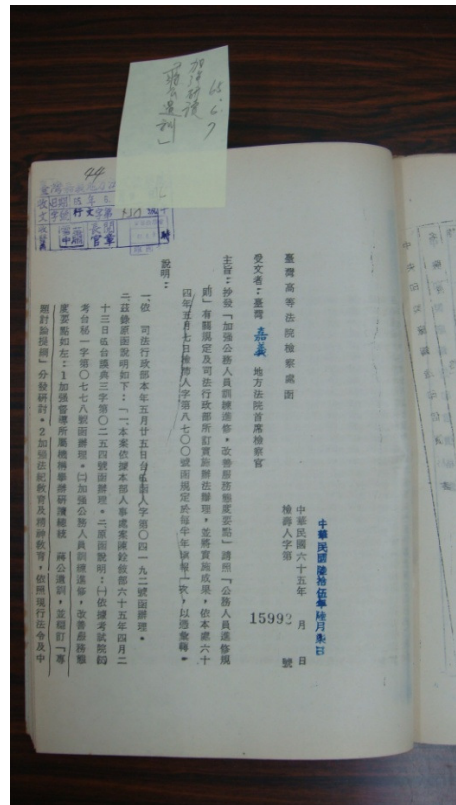 65.6.7
加強研讀
「蔣公遺訓」
44
臺灣高等法院檢察處函
中華民國陸拾伍年陸月
中華民國六十五年　月　日
檢壽人字第15992號
受文者：臺灣嘉義地方法院首席檢察官
主旨：抄發「加強公務人員訓練進修，改善服務態度要點」請照「公務人員進修規
則」有關規定及司法行政部所訂實施辦法辦理，並將實施成果，依本處六十
四年五月七日檢
人字第八七〇〇號函規定於每半年填報一次，以憑彙轉。
說明：
一、依　司法行政部本年五月廿五日台65函人字第〇四一九二號函辦理。
二、茲錄原函說明如下：「一、本案依據本部人事處案陳銓敘部六十五年四月二
十三日65台謨典三字第〇二五四號函辦理。二、原函說明：㈠依據考試院65
考台秘一字第〇七七八號函辦理。㈡加強公務人員訓練進修，改善服務態
度要點如左：1加強督導所屬機構舉辦研讀總統　蔣公遺訓，並編訂「專
題討論提綱」分發研討。2加強法紀教育及精神教育，依照現行法令及中